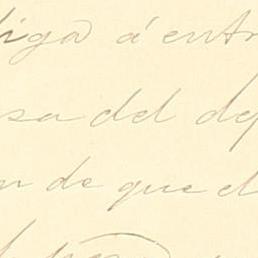 liga á entr
sa del de
n de que el